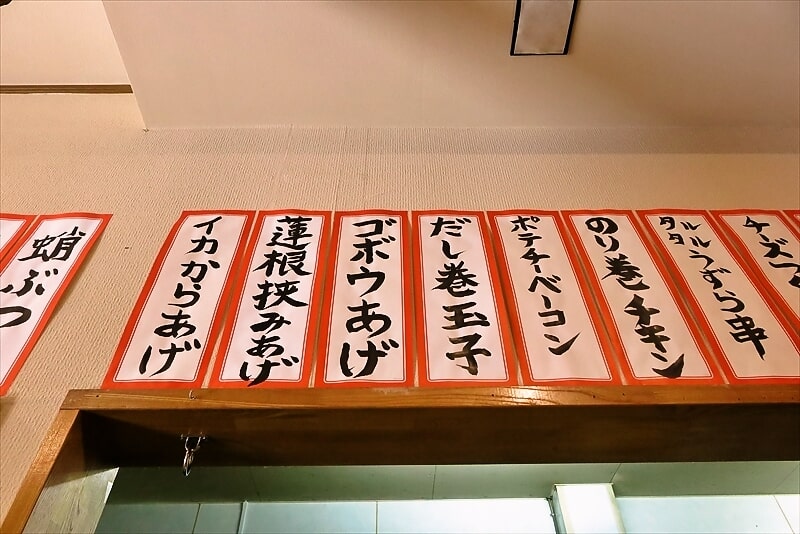 蛸ぶつ
イカからあげ
蓮根挟みあげ
ゴボウあげ
だし巻玉子
ポテチーベーコン
のり巻チキン
タルタルうずら串
チーズ